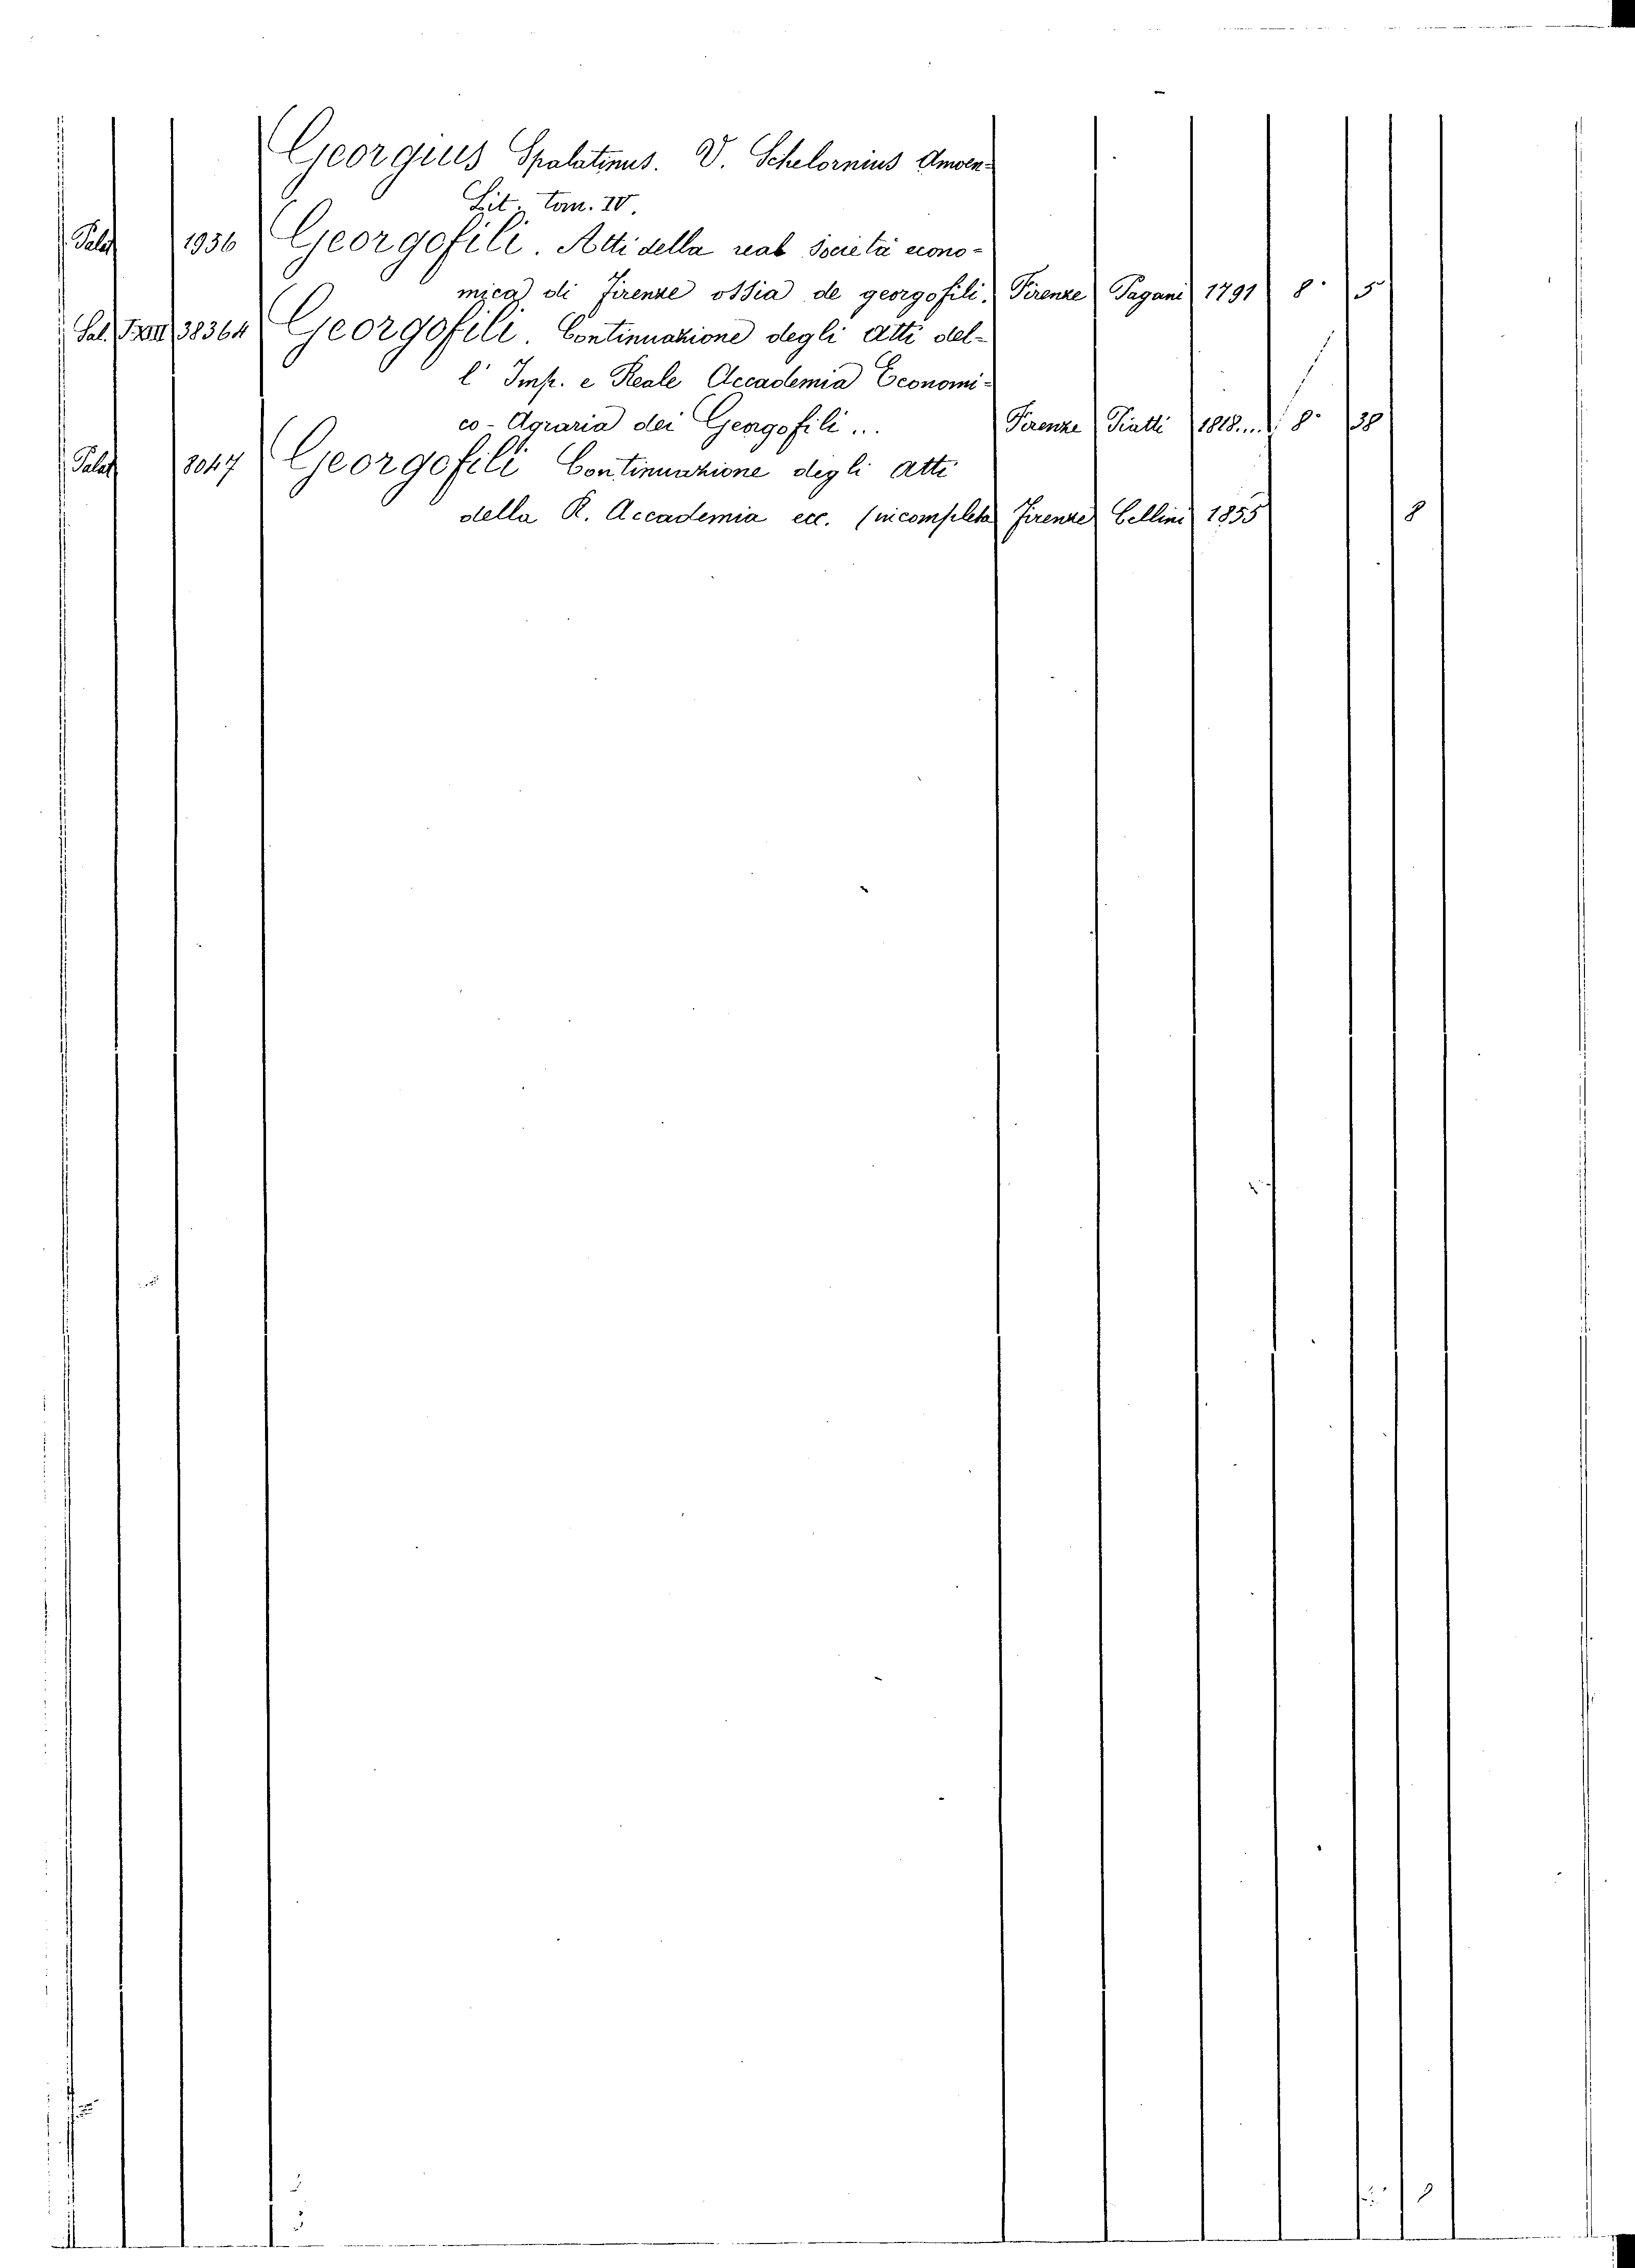 Georgius Spalatinus. V. Schelornius Amoen.
Lit. tom. IV.
Palat 1936 Georgofili. Atti della real società econo-
mica di Firenze ossia de georgofili. Firenze Pagani 1791 8° 5
Sal. 38364 Georgofili. Continuazione degli Atti del-
l' Imp. e Reale Accademia Economi-
co-Agraria dei Georgofili ... Firenze Piatti 1818... 8° 38
Palat 8047 Georgofili Continuazione degli atti
della R. Accademia ecc. (incompleta Firenze Cellini 1855 8